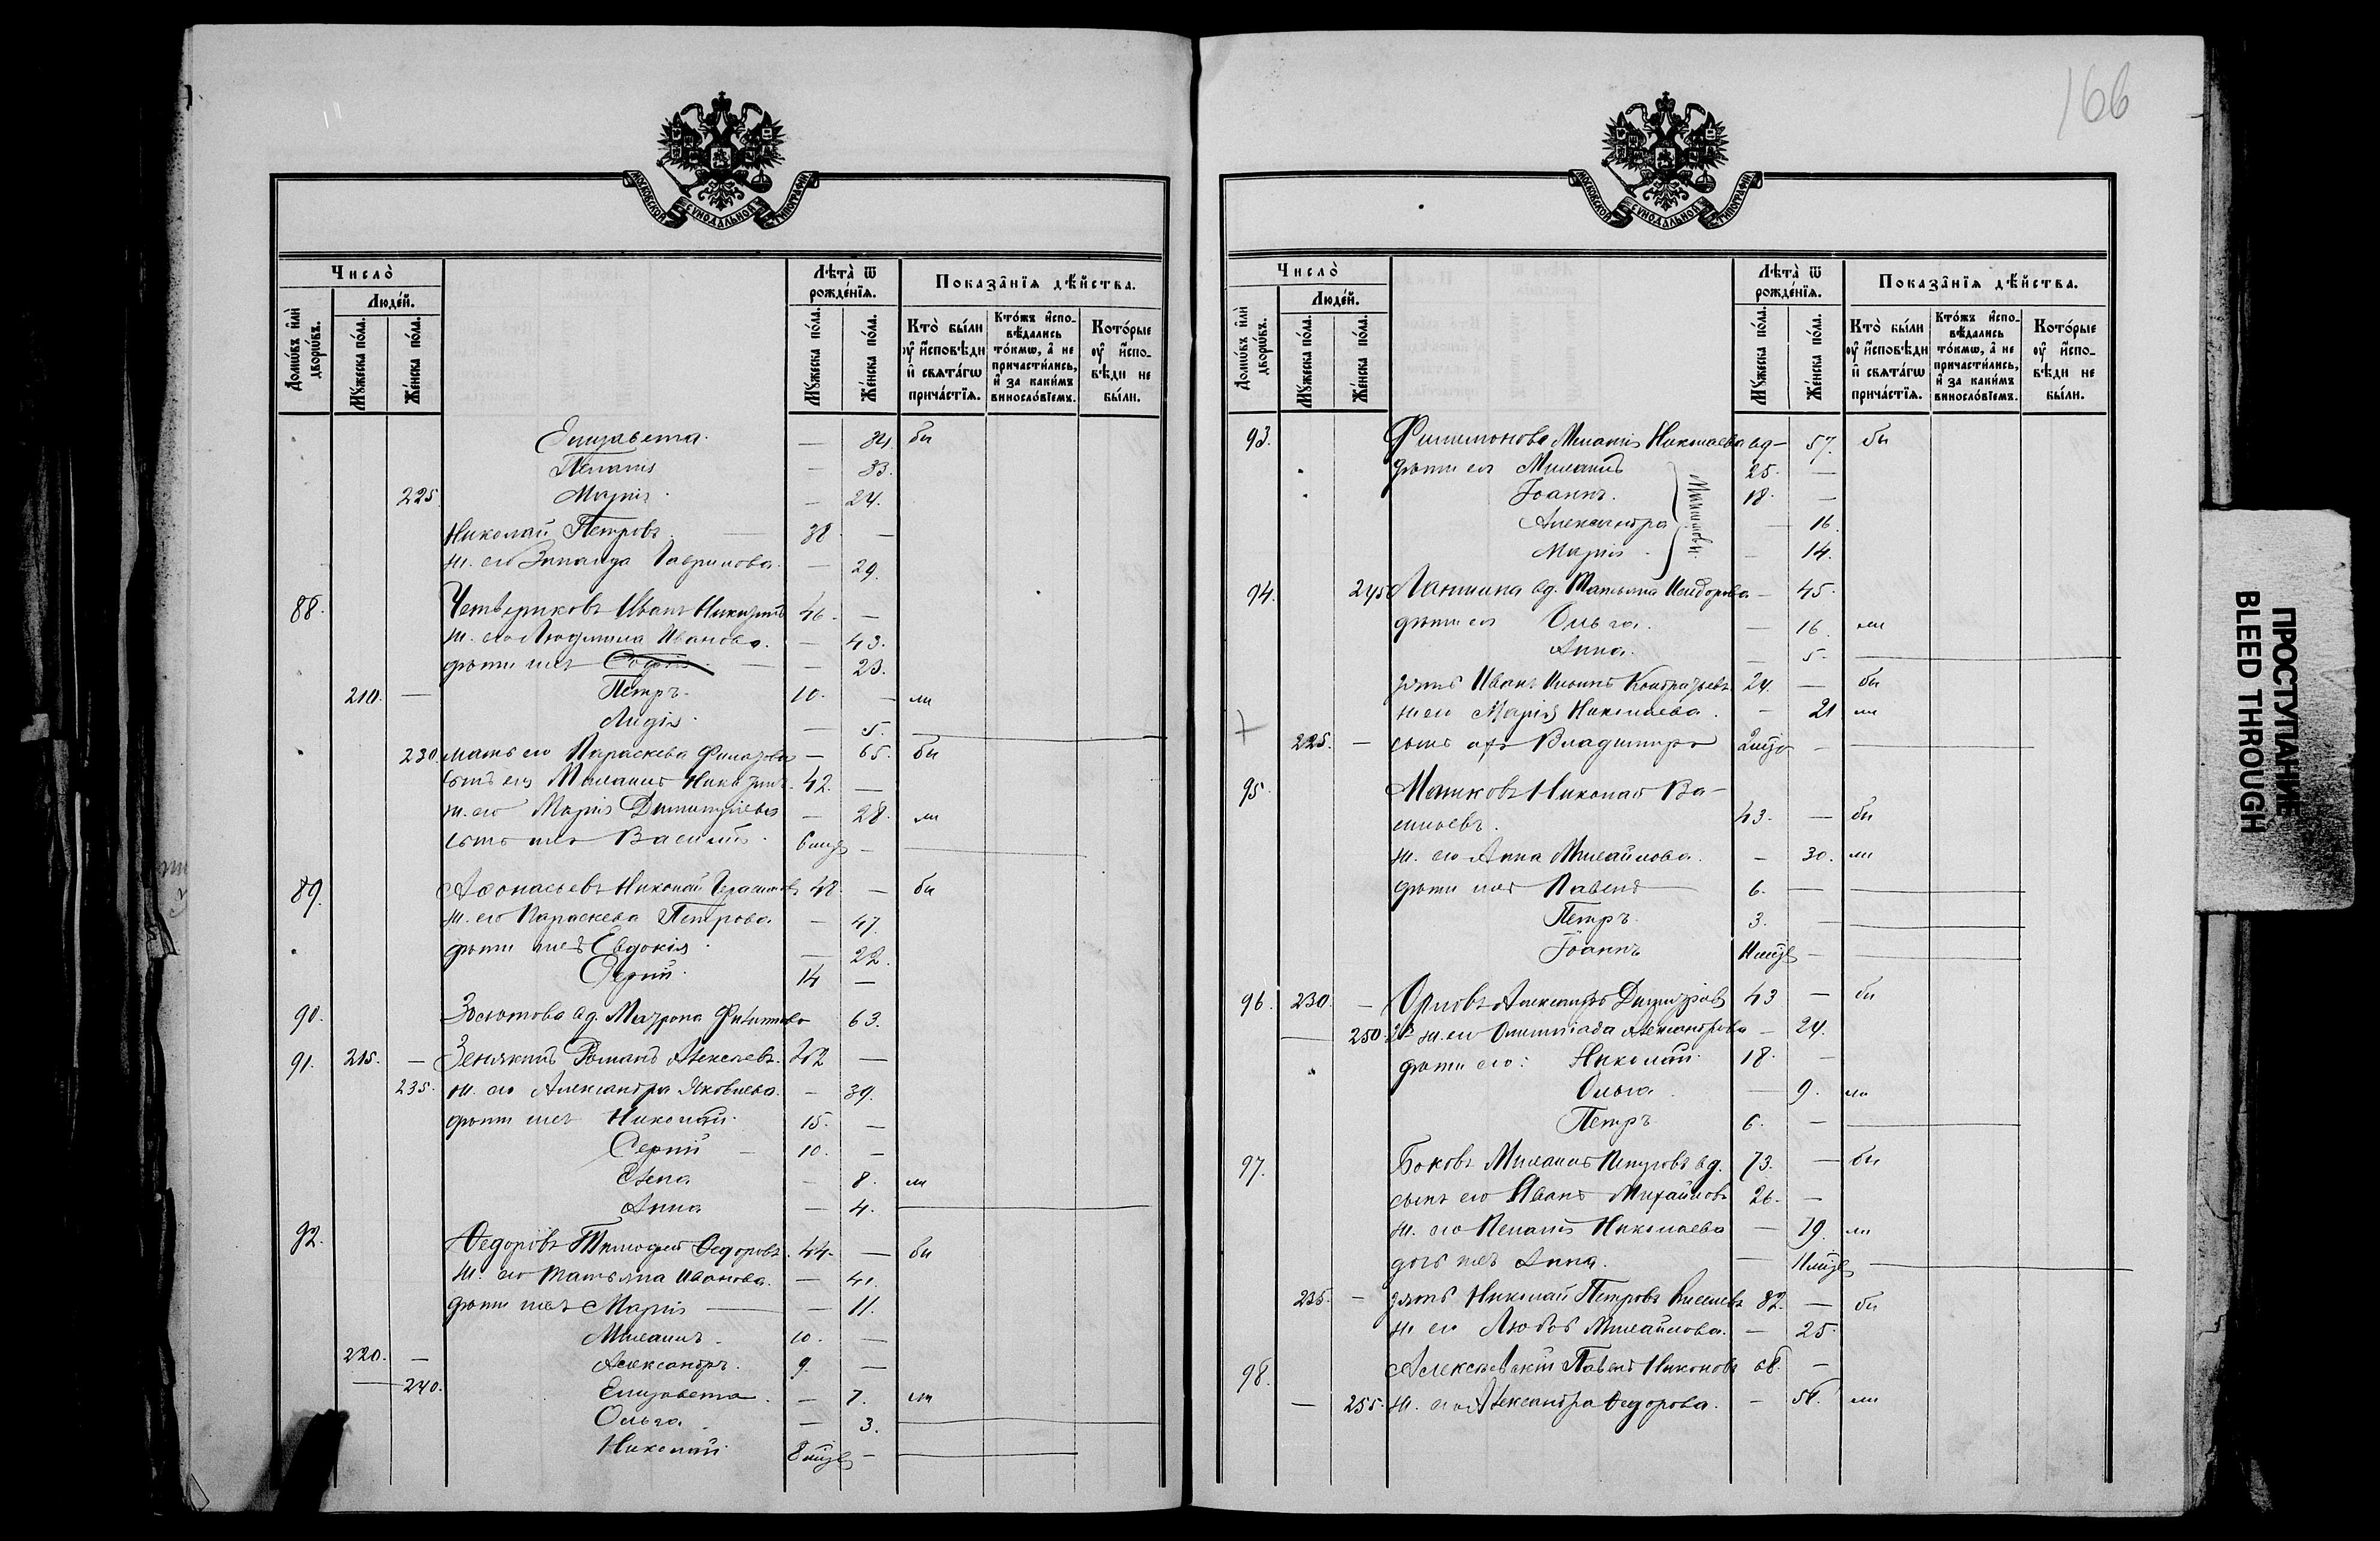 МОСКОВСКОЙ СѴНОДАЛЬНОЙ ТИПОГРАФІИ
Число̀
Людéй.
Домѡ́въ и҆лѝ дворѡ́въ.
Мꙋ́жеска по́ла.
Же́нска по́ла.
Лѣ́та ѿ рожде́нїѧ.
Мꙋ́жеска по́ла.
Же́нска по́ла.
Показа̑нїѧ дѣ́йства.
Кто̀ бы́ли ᲂу҆ и҆сповѣди и҆ свѧта́гѡ прича́стїѧ.
Кто́жъ и҆сповѣ́дались то́кмѡ, а҆ не причасти́лись, и҆ за каки́мъ винослові́емъ.
Кото́рые ᲂу҆ и҆сповѣди не бы́ли.
Елизавета. — 34. бы
Пелагія — 33.
225 Марія. — 24.
Николай Петровъ 38 —
ж. его Зинаида Гаврилова. — 29.
88. Четвериковъ Иванъ 46. —
ж. его Людмила Иванова. — 43.
дѣти ихъ Софія — 23.
210. — Петръ. 10. — ли
Лидія. — 5.
230. мать его Параскева — 65. бы
сынъ ея Михаилъ 42. —
ж. его Марія Димитріева — 28. ли
сынъ ихъ Василій. 6 мцв —
89. Афонасьевъ Николай Герасимовъ 48. — бы
ж. его Параскева Петрова — 47.
дѣти ихъ Евдокія. — 22.
Сергій. 14 —
90. вд. Матрона 63.
91. 215. — Романъ Алексѣевъ. 42 —
235. ж. его Александра Яковлева. — 39.
дѣти ихъ Николай. 15. —
Сергій — 10. —
Елена — 8. ли
Анна — 4.
92. Ѳедоровъ Тимоѳей Ѳедоровъ. 44. — бы
ж. его Татьяна Иванова. — 41.
дѣти ихъ Марія — 11.
Михаилъ. 10. —
220. — Александръ. 9. —
— 240. Елизавета. — 7. ли
Ольга. — 3.
Николай. 8 мцв —
166
МОСКОВСКОЙ СѴНОДАЛЬНОЙ ТИПОГРАФІИ
Число̀
Людéй.
Домѡ́въ и҆лѝ дворѡ́въ.
Мꙋ́жеска по́ла.
Же́нска по́ла.
Лѣ́та ѿ рожде́нїѧ.
Мꙋ́жеска по́ла.
Же́нска по́ла.
Показа̑нїѧ дѣ́йства.
Кто̀ бы́ли ᲂу҆ и҆сповѣди и҆ свѧта́гѡ прича́стїѧ.
Кто́жъ и҆сповѣ́дались то́кмѡ, а҆ не причасти́лись, и҆ за каки́мъ винослові́емъ.
Кото́рые ᲂу҆ и҆сповѣди не бы́ли.
93. Филимонова Николаева вд — 57. бы
дѣти ея Михаилъ 25. —
Іоаннъ. 18. —
Александра — 16.
Марія — 14.
94. 245 вд. Татьяна Исидорова — 45.
дѣти ея Ольга. — 16. ли
Анна. — 5.
зять Иванъ Кондратьевъ 24. — бы
ж. его Марія Николаева. — 21 ли
225. — сынъ ихъ Владимиръ 2 мцв —
95. Машковъ Николай Ва-
сильевъ. 43. — бы
ж. его Анна Михайлова. — 30. ли
дѣти ихъ Павелъ 6. —
Петръ. 3. —
Іоаннъ 11 мцв —
96. 230. — Орловъ Александръ Димитріевъ 43 — бы
— 250. 2я ж. его Олимпіада Александрова — 24.
дѣти его: Николай. 18. —
Ольга. — 9. ли
Петръ 6. —
97. Боковъ Михаилъ Петровъ вд. 73. — бы
сынъ его Иванъ Михайловъ 26. —
ж. его Пелагія Николаева — 19. ли
дочь ихъ Анна. — 11 мцв
235. — зять Николай Петровъ Киселевъ 32. — бы
ж. его Любовь Михайлова. — 25.
98. Павелъ 68. —
— 255. ж. его Александра Ѳедорова. — 51. ли
ПРОСТУПАНИЕ
BLED THROUGH